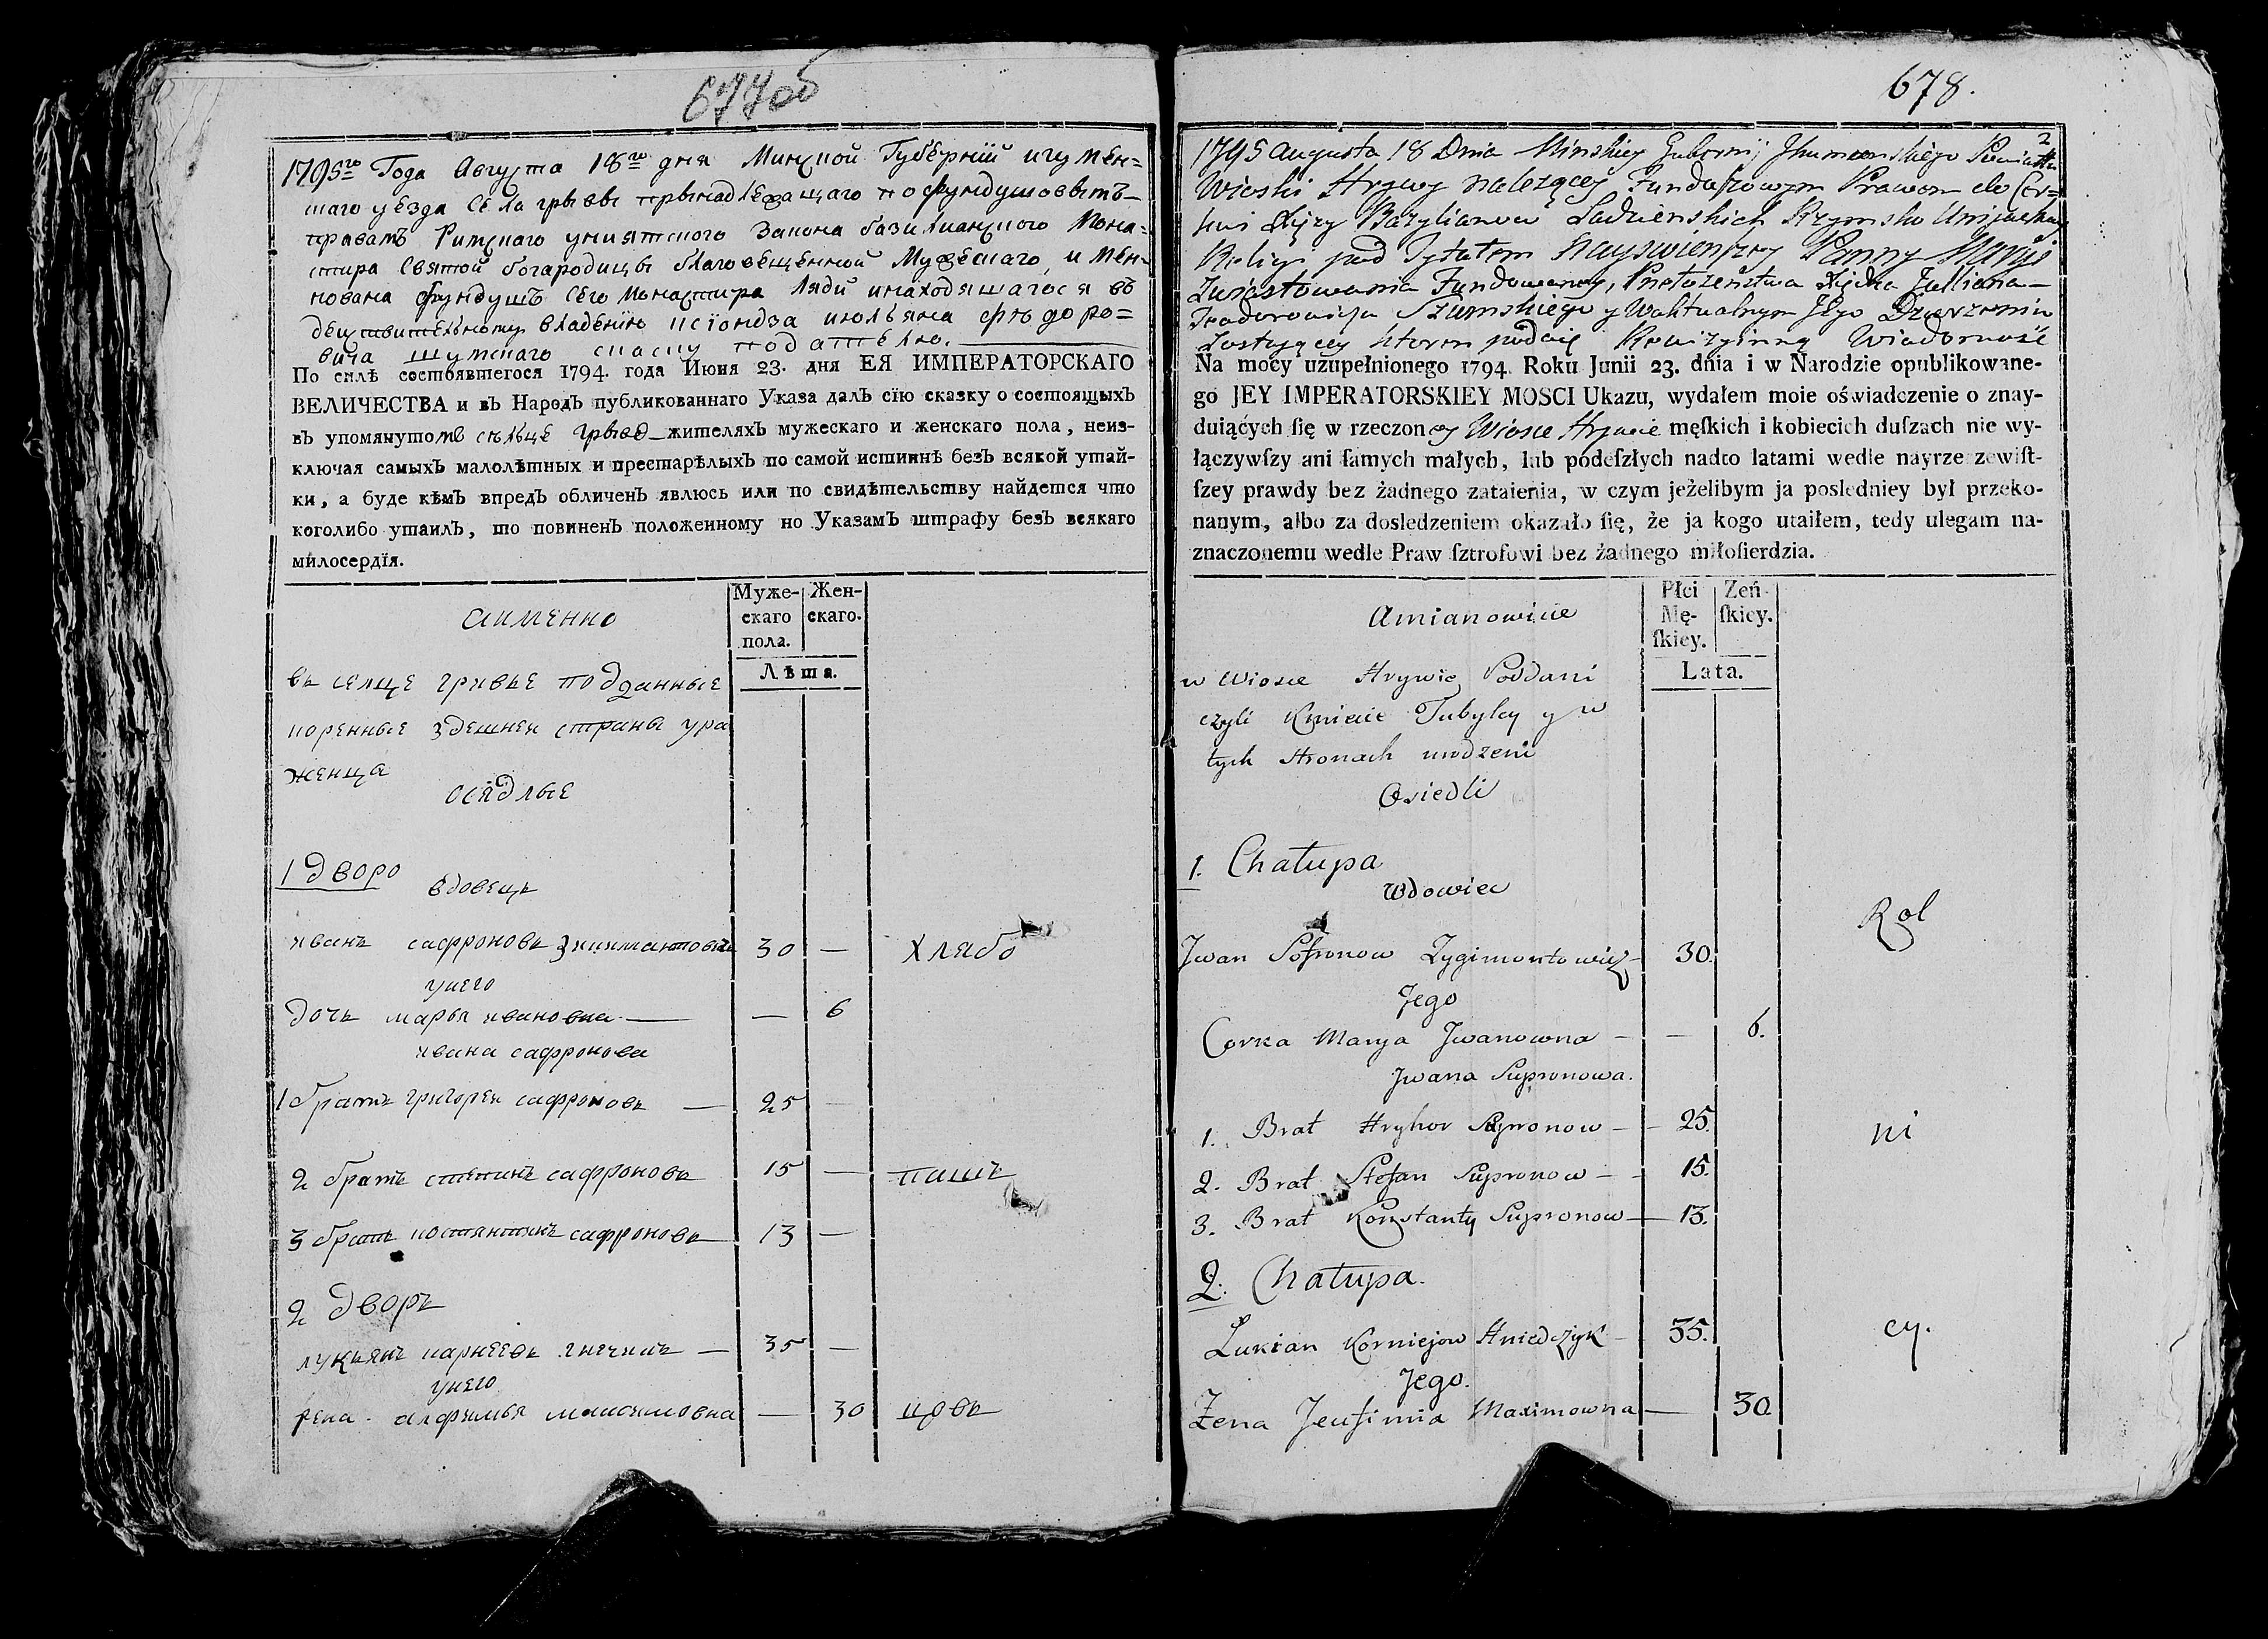 677об
1795го Года Августа 18го дня Минской Губернїй игумен-
шаго уезда Села грывы прынадлежащаго пофундушовымъ
правамъ Римскаго униятского Закона базилианского Мона-
стира Святой богародицы благовещенной Мужескаго, и мен-
нована фундушъ Сего Монастира Ляди инаходяшагося въ
действительному владению ксiондза июльяна фюдоро=
вича шумскаго
По силѣ состоявшегося 1794. года Июня 23. дня ЕЯ ИМПЕРАТОРСКАГО
ВЕЛИЧЕСТВА и въ Народъ публикованнаго Указа далъ сїю сказку о состоящыхъ
въ упомянутомъ сельце грыве жителяхъ мужескаго и женскаго пола, неиз-
ключая самыхъ малолѣтныхъ и престарѣлыхъ по самой истиннѣ безъ всякой утай-
ки, а буде кѣмъ впредь обличенъ явлюсь или по свидѣтельству найдется что
коголибо утаилъ, то повиненъ положенному по Указамъ штрафу безъ всякаго
милосердїя.
аименно
Муже-
скаго
пола.
Жен-
скаго.
Лѣта.
въ селце гривье подданные
коренные здешней страны ура
женца
осядлые
1 дворо
вдовецъ
иванъ сафроновъ 30 — хлябо
унего
дочь марья ивановна — — 6
ивана сафронова
1 братъ григорей сафроновъ — 25 —
2 братъ степанъ сафроновъ 15 — пашъ
3 братъ костянтинъ сафроновъ 13 —
2 дворъ
лукьянъ карнеевъ гнечикъ — 35 —
унего
жена алфимья максимовна — 30 цовъ
678.
2
1795 Augusta 18 Dnia Minskiey Gubernij Jhumenskiego Powiatu
Wioski Hrywy należącey Funduszowym Prawem do Cer=
kwi Xięży Bazylianow Ladzienskich Rzymsko Unijackiey
Religij pod Tytułem Nayswiętszey Panny Maryi
Zwiastowania Fundowaney, Przełożeństwa Xiędza Julliana
Teodorowicza Szumskiego y Waktualnym Jego Dzierżeniu
Zostającey ktoren podaię Rewizyinną Wiadomość
Na mocy uzupełnionego 1794 Roku Junii 23. dnia i w Narodzie opublikowane-
go JEY IMPERATORSKIEY MOSCI Ukazu, wydałem moie oświadczenie o znay-
duiących ſię w rzeczoney Wiosce Hrywie męſkich i kobiecich duſzach nie wy-
łączywſzy ani ſamych małych, lub podeſzłych nadto latami wedle nayrzetezwiſt-
ſzey prawdy bez żadnego zataienia, w czym jeżelibym ja posledniey był przeko-
nanym, albo za dosledzeniem okazało ſię, że ja kogo utaiłem, tedy ulegam na-
znaczonemu wedle Praw ſztrofowi bez żadnego miłoſierdzia.
Amianowicie
Płci
Mę-
ſkiey.
Zeń-
ſkiey.
Lata.
w Wiosce Hrywie Poddani
czyli Kmiecie Tubylcy y w
tych Stronach urodzeni
Osiedli
1. Chałupa
Wdowiec
Rol
Jwan Sofronow Zygimontowicz 30.
Jego
Corka Marya Jwanowna — — 6.
Jwana Supronowa.
1. Brat Hryhor Supronow — 25. ni
2. Brat Stefan Supronow — 15.
3. Brat Konstanty Supronow — 13.
2. Chałupa.
Łukian Korniejow Hniedczyk — 35. cy.
Jego.
Żena Jeufimia Maximowna — 30